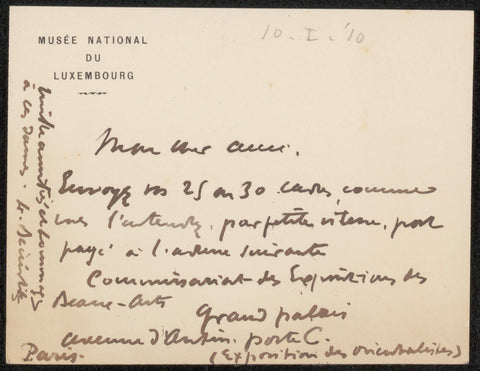 MUSÉE NATIONAL
DU
LUXEMBOURG
10. I. '10
Mon cher ami,
Envoyez vos 25 ou 30 cadres, comme
vous l'entendez, par petite vitesse, port
payé à l'adresse suivante
Commissariat des Expositions des
Beaux-Arts
Grand palais
avenue d'Antin. porte C.
Paris. (Exposition des orientalistes)
Mille amitiés et hommages
à ces dames. L. Bénédite